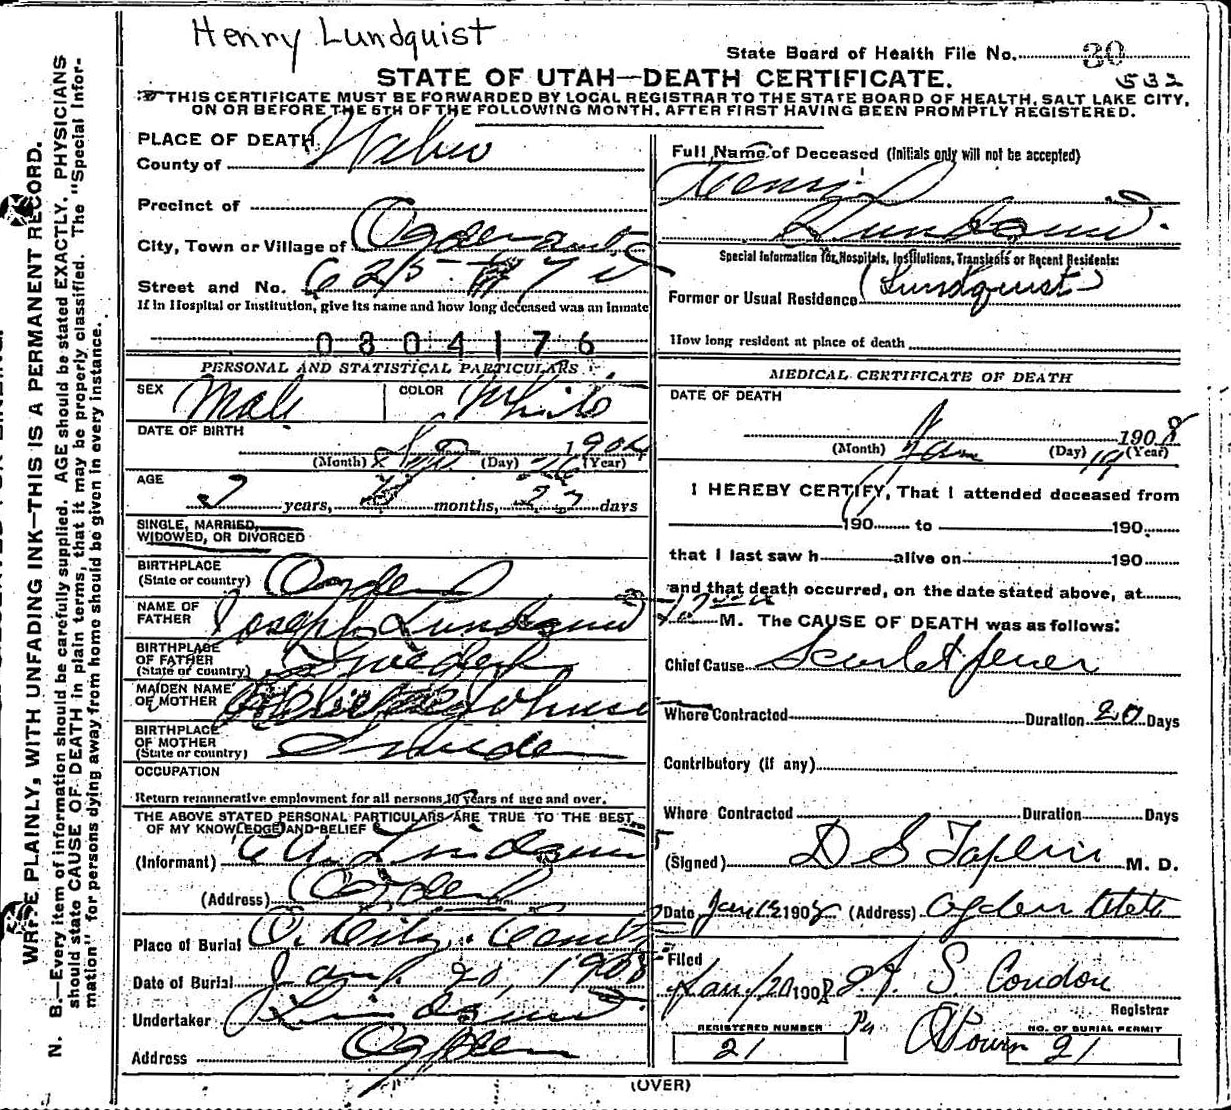 Henry Lundquist
State Board of Health File No. 20
532
STATE OF UTAH—DEATH CERTIFICATE.
THIS CERTIFICATE MUST BE FORWARDED BY LOCAL REGISTRAR TO THE STATE BOARD OF HEALTH, SALT LAKE CITY,
ON OR BEFORE THE 5TH OF THE FOLLOWING MONTH, AFTER FIRST HAVING BEEN PROMPTLY REGISTERED.
WRITE PLAINLY, WITH UNFADING INK—THIS IS A PERMANENT RECORD.
N. B.—Every item of information should be carefully supplied. AGE should be stated EXACTLY. PHYSICIANS
should state CAUSE OF DEATH in plain terms, that it may be properly classified. The "Special Infor-
mation" for persons dying away from home should be given in every instance.
PLACE OF DEATH
County of Weber
Precinct of
City, Town or Village of Ogden
Street and No. 625
If in Hospital or Institution, give its name and how long deceased was an Inmate
0304176
PERSONAL AND STATISTICAL PARTICULARS
SEX Male COLOR White
DATE OF BIRTH
1904
(Month) (Day) (Year)
AGE
3 years, months, 23 days
SINGLE, MARRIED,
WIDOWED, OR DIVORCED
BIRTHPLACE
(State or country) Ogden
NAME OF
FATHER Joseph Lundquist
BIRTHPLACE
OF FATHER
(State or country) Sweden
MAIDEN NAME
OF MOTHER Johnson
BIRTHPLACE
OF MOTHER
(State or country) Sweden
OCCUPATION
Return remunerative employment for all persons 10 years of age and over.
THE ABOVE STATED PERSONAL PARTICULARS ARE TRUE TO THE BEST
OF MY KNOWLEDGE AND BELIEF
(Informant) Lindquist
(Address) Ogden
Place of Burial O. City Cemt
Date of Burial Jan. 20, 1908
Undertaker Lindquist
Address Ogden
Full Name of Deceased (Initials only will not be accepted)
Henry
Lundquist.
Special Information for Hospitals, Institutions, Transients or Recent Residents:
(Lundquist)
Former or Usual Residence
How long resident at place of death
MEDICAL CERTIFICATE OF DEATH
DATE OF DEATH
1908
(Month) Jan (Day) 19 (Year)
I HEREBY CERTIFY, That I attended deceased from
190 to 190
that I last saw h alive on 190
and that death occurred, on the date stated above, at
M. The CAUSE OF DEATH was as follows:
Chief Cause Scarlet fever
Where Contracted Duration 20 Days
Contributory (if any)
Where Contracted Duration Days
(Signed) D S Taplin M. D.
Date Jan 19 1908 (Address) Ogden Utah
Filed
Jan. 20 1908 S. Condon
Registrar
REGISTERED NUMBER
21
Per
NO. OF BURIAL PERMIT
21
(OVER)